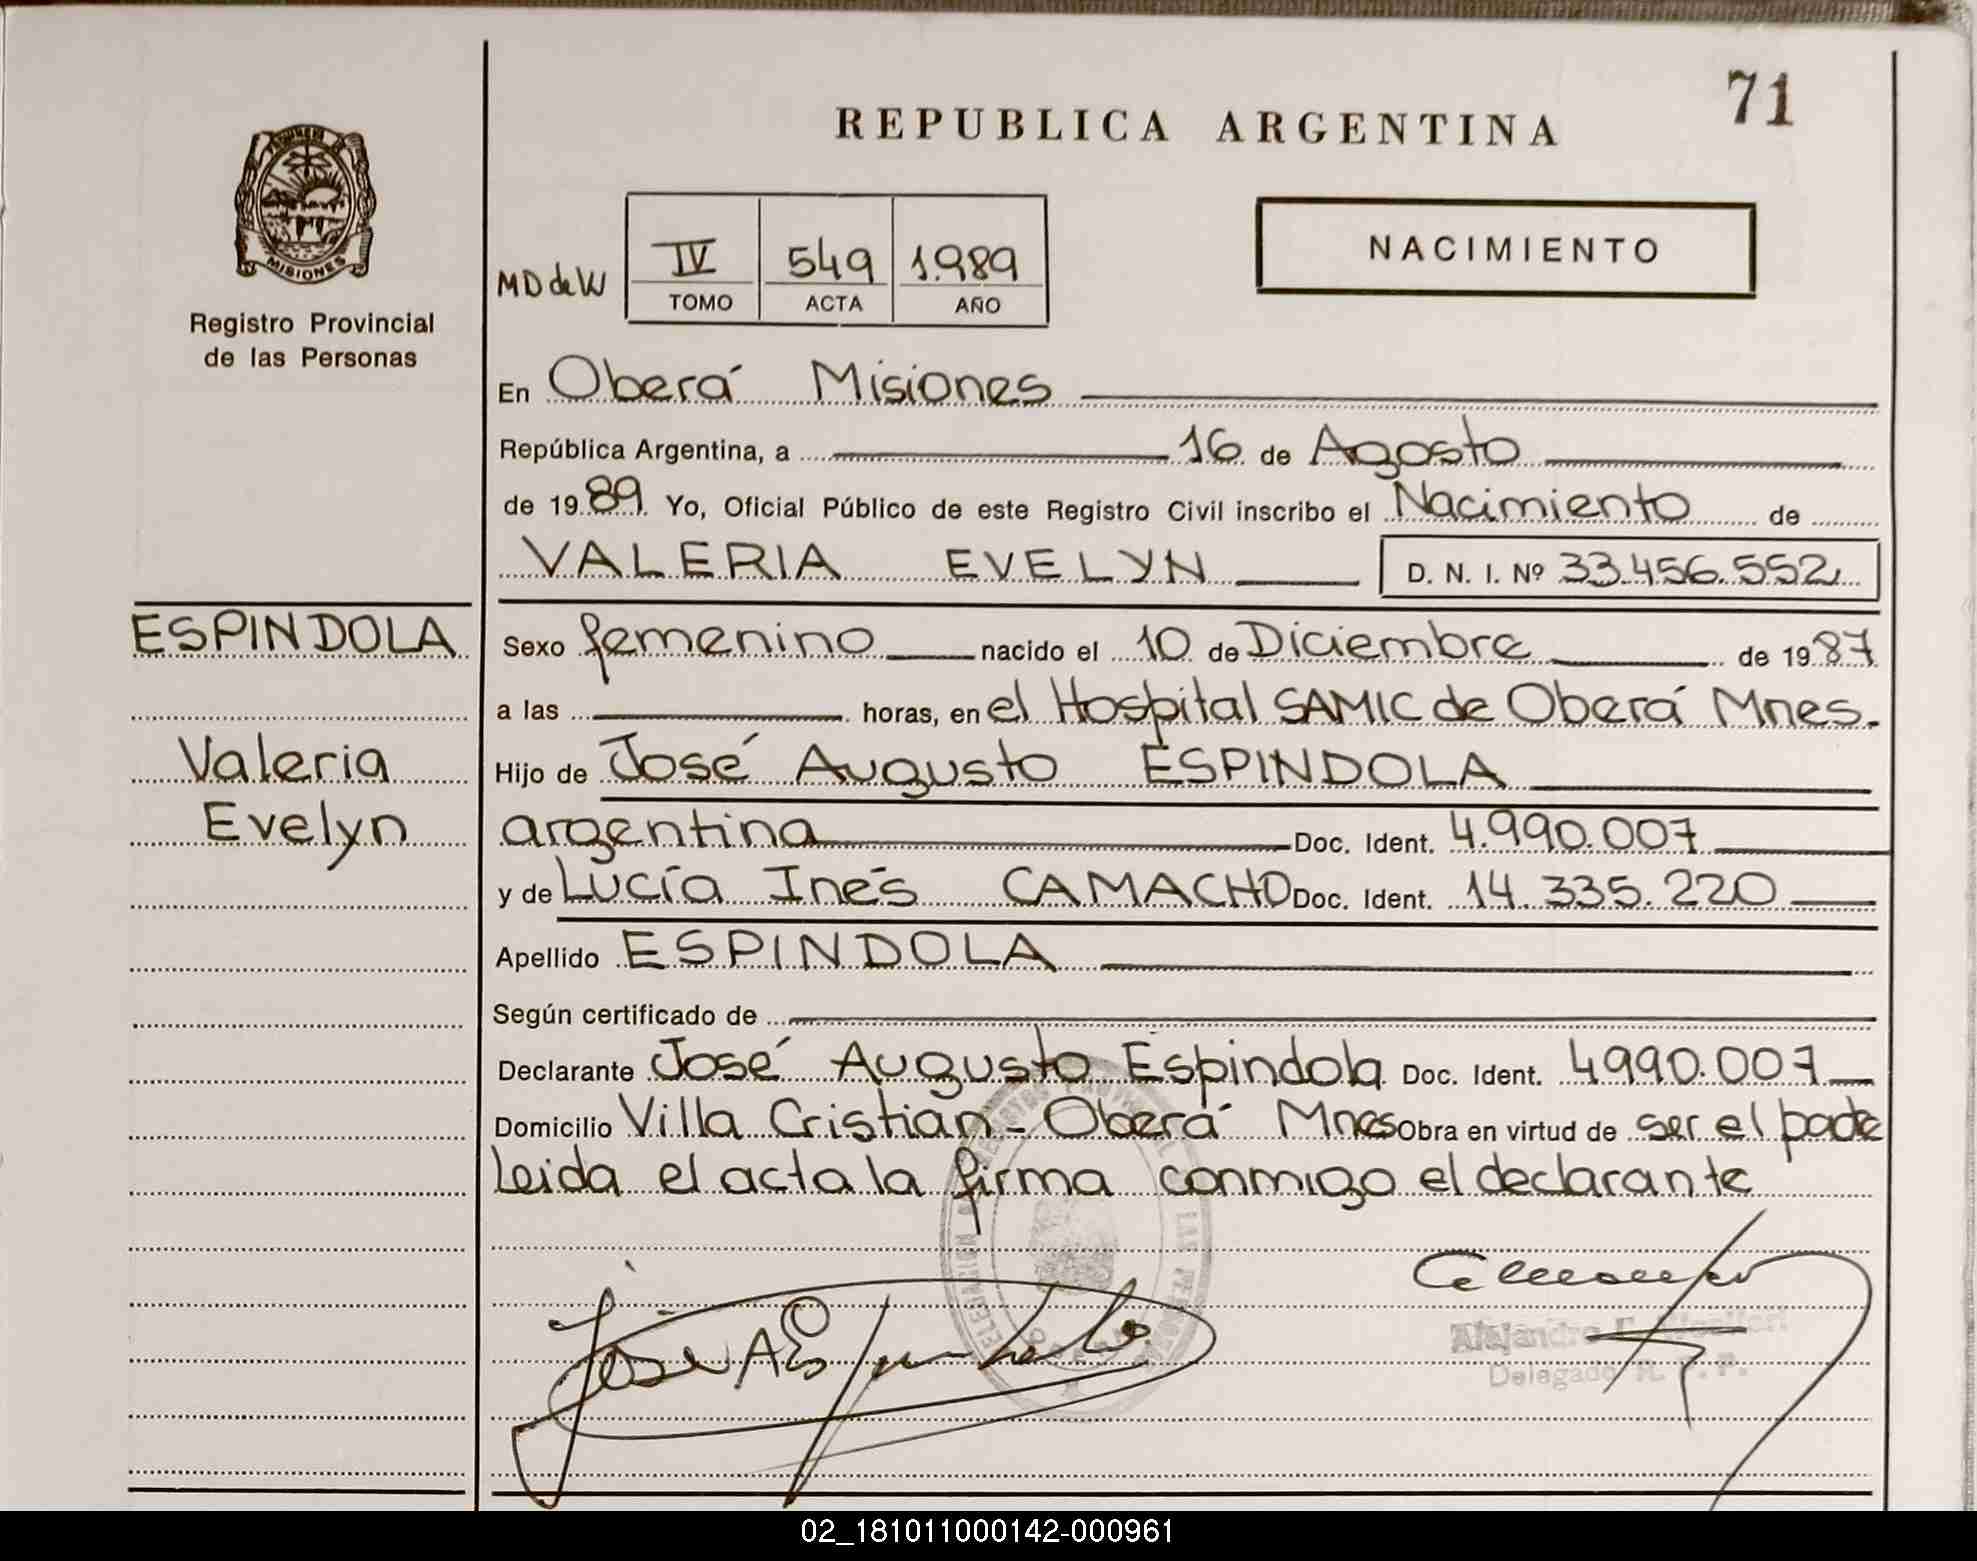 71
REPUBLICA ARGENTINA
MISIONES
Registro Provincial
de las Personas
MD de W
IV 549 1.989
TOMO ACTA AÑO
NACIMIENTO
En Oberá Misiones
República Argentina, a 16 de Agosto
de 1989. Yo, Oficial Público de este Registro Civil inscribo el Nacimiento de
VALERIA EVELYN D. N. I. Nº 33.456.552
ESPINDOLA
Valeria
Evelyn
Sexo femenino nacido el 10 de Diciembre de 1987
a las horas, en el Hospital SAMIC de Oberá Mnes.
Hijo de José Augusto ESPINDOLA
argentina Doc. Ident. 4.990.007
y de Lucía Inés CAMACHO Doc. Ident. 14.335.220
Apellido ESPINDOLA
Según certificado de
Declarante José Augusto Espindola Doc. Ident. 4990.007
Domicilio Villa Cristian - Oberá Mnes Obra en virtud de ser el padre
Leida el acta la firma conmigo el declarante
Delegado R. P. P.
02_181011000142-000961